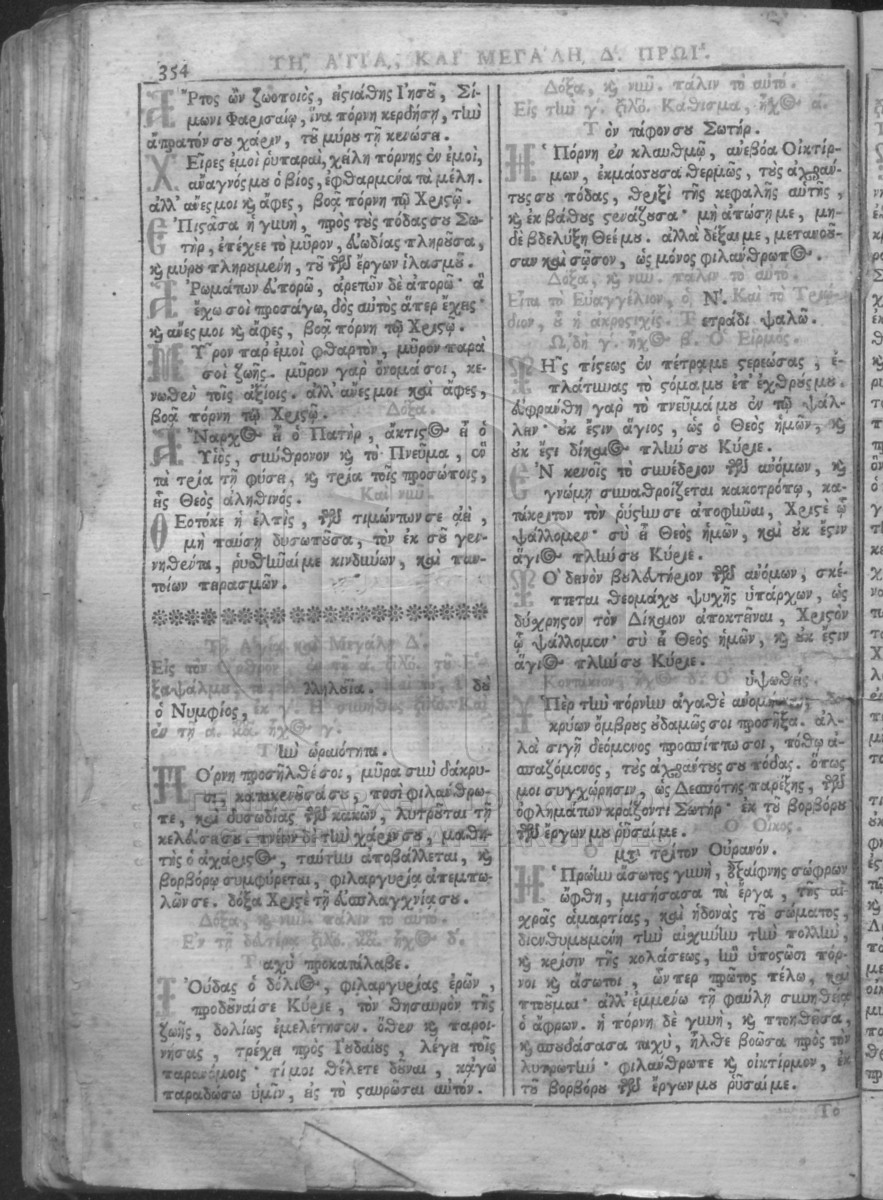 354 ΤΗ͂ ἉΓΊΑ, ΚΑῚ ΜΕΓΆΛΗ, Δ. ΠΡΩΪ́.
ἌΡτος ὢν ζωοποιὸς, εἱστιάθης Ἰησοῦ, Σί-
μωνι Φαρισαίῳ, ἵνα πόρνη κερδήσῃ, τὴν
ἄπρατόν σου χάριν, τοῦ μύρου τῇ κενώσει.
ΧΕῖρες ἐμοὶ ῥυπαραὶ, χείλη πόρνης ἐν ἐμοί,
ἄναγνός μου ὁ βίος, ἐφθαρμένα τὰ μέλη.
ἀλλ' ἄνες μοι καὶ ἄφες, βοᾷ πόρνη τῷ Χριστῷ.
ἘΠιστᾶσα ἡ γυνὴ, πρὸς τοὺς πόδας σου Σω-
τὴρ, ἐπέχεε τὸ μύρον, εὐωδίας πληροῦσα,
καὶ μύρου πληρουμένη, τοῦ τῶν ἔργων ἱλασμοῦ.
ἈΡωμάτων εὐπορῶ, ἀρετῶν δὲ ἀπορῶ· ἃ
ἔχω σοὶ προσάγω, δὸς αὐτὸς ἅπερ ἔχεις·
καὶ ἄνες μοι καὶ ἄφες, βοᾷ πόρνη τῷ Χριστῷ.
ΜΥ͂ρον παρ' ἐμοὶ φθαρτὸν, μῦρον παρὰ
σοὶ ζωῆς. μῦρον γὰρ ὄνομά σοι, κε-
νωθὲν τοῖς ἀξίοις. ἀλλ' ἄνες μοι καὶ ἄφες,
βοᾷ πόρνη τῷ Χριστῷ. Δόξα.
ἌΝαρχος εἶ ὁ Πατὴρ, ἄκτιστος εἶ ὁ
Υἱὸς, σύνθρονον καὶ τὸ Πνεῦμα, ἓν
τὰ τρία τῇ φύσει, καὶ τρία τοῖς προσώποις,
εἷς Θεὸς ἀληθινός. Καὶ νῦν.
ΘΕοτόκε ἡ ἐλπὶς, τῶν τιμώντων σε ἀεὶ,
μὴ παύσῃ δυσωποῦσα, τὸν ἐκ σοῦ γεν-
νηθέντα, ῥυσθῆναί με κινδύνων, καὶ παν-
τοίων πειρασμῶν.
Τῇ Ἁγίᾳ καὶ Μεγάλῃ Δ.
ἀλληλούϊα.
ὁ Νυμφίος,
ἐν τῇ α. κα. ἦχος γ.
Τὴν ὡραιότητα.
ΠΌρνη προσῆλθέ σοι, μῦρα σὺν δάκρυ-
σι, κατακενοῦσά σου, ποσὶ φιλάνθρω-
πε, καὶ δυσωδίας τῶν κακῶν, λυτροῦται τῇ
κελεύσει σου. πνέων δὲ τὴν χάριν σου, μαθη-
τὴς ὁ ἀχάριστος, ταύτην ἀποβάλλεται, καὶ
βορβόρῳ συμφύρεται, φιλαργυρίᾳ ἀπεμπω-
λῶν σε. δόξα Χριστὲ τῇ εὐσπλαγχνίᾳ σου.
Δόξα, καὶ νῦν. πάλιν τὸ αὐτό.
Ἐν τῇ δευτέρᾳ στιχο. κα. ἦχος δ.
Ταχὺ προκατάλαβε.
ἸΟύδας ὁ δόλιος, φιλαργυρίας ἐρῶν,
προδοῦναί σε Κύριε, τὸν θησαυρὸν τῆς
ζωῆς, δολίως ἐμελέτησεν. ὅθεν καὶ παροι-
νήσας, τρέχει πρὸς Ἰουδαίους, λέγει τοῖς
παρανόμοις· τί μοι θέλετε δοῦναι, κἀγὼ
παραδώσω ὑμῖν, εἰς τὸ σταυρῶσαι αὐτόν.
Δόξα, καὶ νῦν. πάλιν τὸ αὐτό.
Εἰς τὴν γ. στιχο. Κάθισμα, ἦχος α.
Τὸν τάφον σου Σωτήρ.
Ἡ Πόρνη ἐν κλαυθμῷ, ἀνεβόα Οἰκτίρ-
μων, ἐκμάσσουσα θερμῶς, τοὺς ἀχράν-
τους σου πόδας, θριξὶ τῆς κεφαλῆς αὐτῆς,
καὶ ἐκ βάθους στενάζουσα· μὴ ἀπώσῃ με, μη-
δὲ βδελύξῃ Θεέ μου. ἀλλὰ δέξαι με, μετανοοῦ-
σαν καὶ σῶσον, ὡς μόνος φιλάνθρωπος.
Δόξα, καὶ νῦν. πάλιν τὸ αὐτό.
Εἶτα τὸ Εὐαγγέλιον, ὁ Ν. Καὶ τὸ Τριῴ-
διον, οὗ ἡ ἀκροστιχίς. Τετράδι ψαλῶ.
ᾨδὴ γ. ἦχος β. Ὁ Εἱρμός.
ΤΗ͂ς πίστεως ἐν πέτρᾳ με στερεώσας, ἐ-
πλάτυνας τὸ στόμα μου ἐπ' ἐχθρούς μου.
εὐφράνθη γὰρ τὸ πνεῦμά μου ἐν τῷ ψάλ-
λειν· οὐκ ἔστιν ἅγιος, ὡς ὁ Θεὸς ἡμῶν, καὶ
οὐκ ἔστι δίκαιος πλήν σου Κύριε.
ἘΝ κενοῖς τὸ συνέδριον τῶν ἀνόμων, καὶ
γνώμῃ συναθροίζεται κακοτρόπῳ, κα-
τάκριτον τὸν ῥύστην σε ἀποφῆναι, Χριστὲ ᾧ
ψάλλομεν· σὺ εἶ Θεὸς ἡμῶν, καὶ οὐκ ἔστιν
ἅγιος πλήν σου Κύριε.
ΤὸΟ δεινὸν βουλευτήριον τῶν ἀνόμων, σκέ-
πτεται θεομάχου ψυχῆς ὑπάρχων, ὡς
δύχρηστον τὸν Δίκαιον ἀποκτεῖναι, Χριστὸν
ᾧ ψάλλομεν· σὺ εἶ Θεὸς ἡμῶν, καὶ οὐκ ἔστιν
ἅγιος πλήν σου Κύριε.
Κοντάκιον ἦχος δ. Ὁ ὑψωθείς.
ὙΠὲρ τὴν πόρνην ἀγαθὲ ἀνομήσας, δα-
κρύων ὄμβρους οὐδαμῶς σοι προσῆξα. ἀλ-
λὰ σιγῇ δεόμενος προσπίπτω σοι, πόθῳ ἀ-
σπαζόμενος, τοὺς ἀχράντους σου πόδας. ὅπως
μοι συγχώρησιν, ὡς Δεσπότης παρέξῃς, τῶν
ὀφλημάτων κράζοντι Σωτήρ· ἐκ τοῦ βορβόρου
τῶν ἔργων μου ῥῦσαί με.
Ὁ Οἶκος.
μτι τρίτον Οὐρανόν.
Ἡ Πρώην ἄσωτος γυνὴ, ἐξαίφνης σώφρων
ὤφθη, μισήσασα τὰ ἔργα, τῆς αἰ-
χρᾶς ἁμαρτίας, καὶ ἡδονὰς τοῦ σώματος,
διενθυμουμένη τὴν αἰχύνην τὴν πολλὴν,
καὶ κρίσιν τῆς κολάσεως, ἣν ὑποστῶσι πόρ-
νοι καὶ ἄσωτοι, ὧν περ πρῶτος πέλω, καὶ
πτοοῦμαι· ἀλλ' ἐμμένω τῇ φαύλῃ συνηθείᾳ
ὁ ἄφρων. ἡ πόρνη δὲ γυνὴ, καὶ πτοηθεῖσα,
καὶ σπουδάσασα ταχὺ, ἦλθε βοῶσα πρὸς τὸν
λυτρωτήν· φιλάνθρωπε καὶ οἰκτίρμον, ἐκ
τοῦ βορβόρου τῶν ἔργων μου ῥῦσαί με.
Τὸ